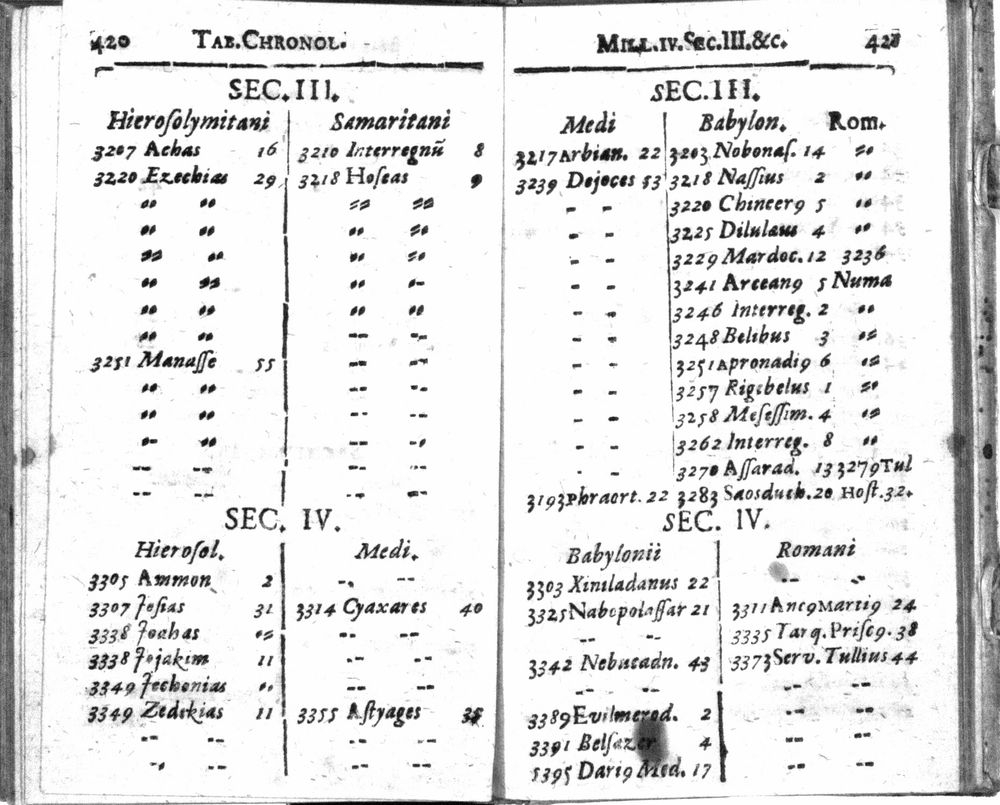 420 TAB.CHRONOL.
SEC.III.
Hierosolymitani Samaritani
3207 Achas 16 3210 Interregnū 8
3220 Ezechias 29 3218 Hoseas 9
3251 Manasse 55
SEC. IV.
Hierosol. Medi.
3305 Ammon 2
3307 Josias 31 3314 Cyaxares 40
3338 Joahas
3338 Jojakim 11
3349 Jechonias
3349 Zedekias 11 3355 Astyages 35
MILL.IV.SEC.III.&c. 421
SEC.III.
Medi Babylon. Rom.
3217 Arbian. 22 3203 Nobonas. 14
3239 Dejoces 53 3218 Nassius 2
3220 Chineer9 5
3225 Dilulaus 4
3229 Mardoc. 12 3236
3241 Arcean9 5 Numa
3246 Interreg. 2
3248 Belibus 3
3251 Apronadi9 6
3257 Rigebelus 1
3258 Mesessim. 4
3262 Interreg. 8
3270 Assarad. 13 3279 Tul
3193 Phraort. 22 3283 Saosduch. 20 Host. 32.
SEC. IV.
Babylonii Romani
3303 Xiniladanus 22
3325 Nabopolassar 21 3311 Anc9 Marti9 24
3335 Tarq. Prisc9. 38
3342 Nebucadn. 43 3373 Serv. Tullius 44
3389 Evilmerod. 2
3391 Belsazer 4
5395 Dari9 Med. 17